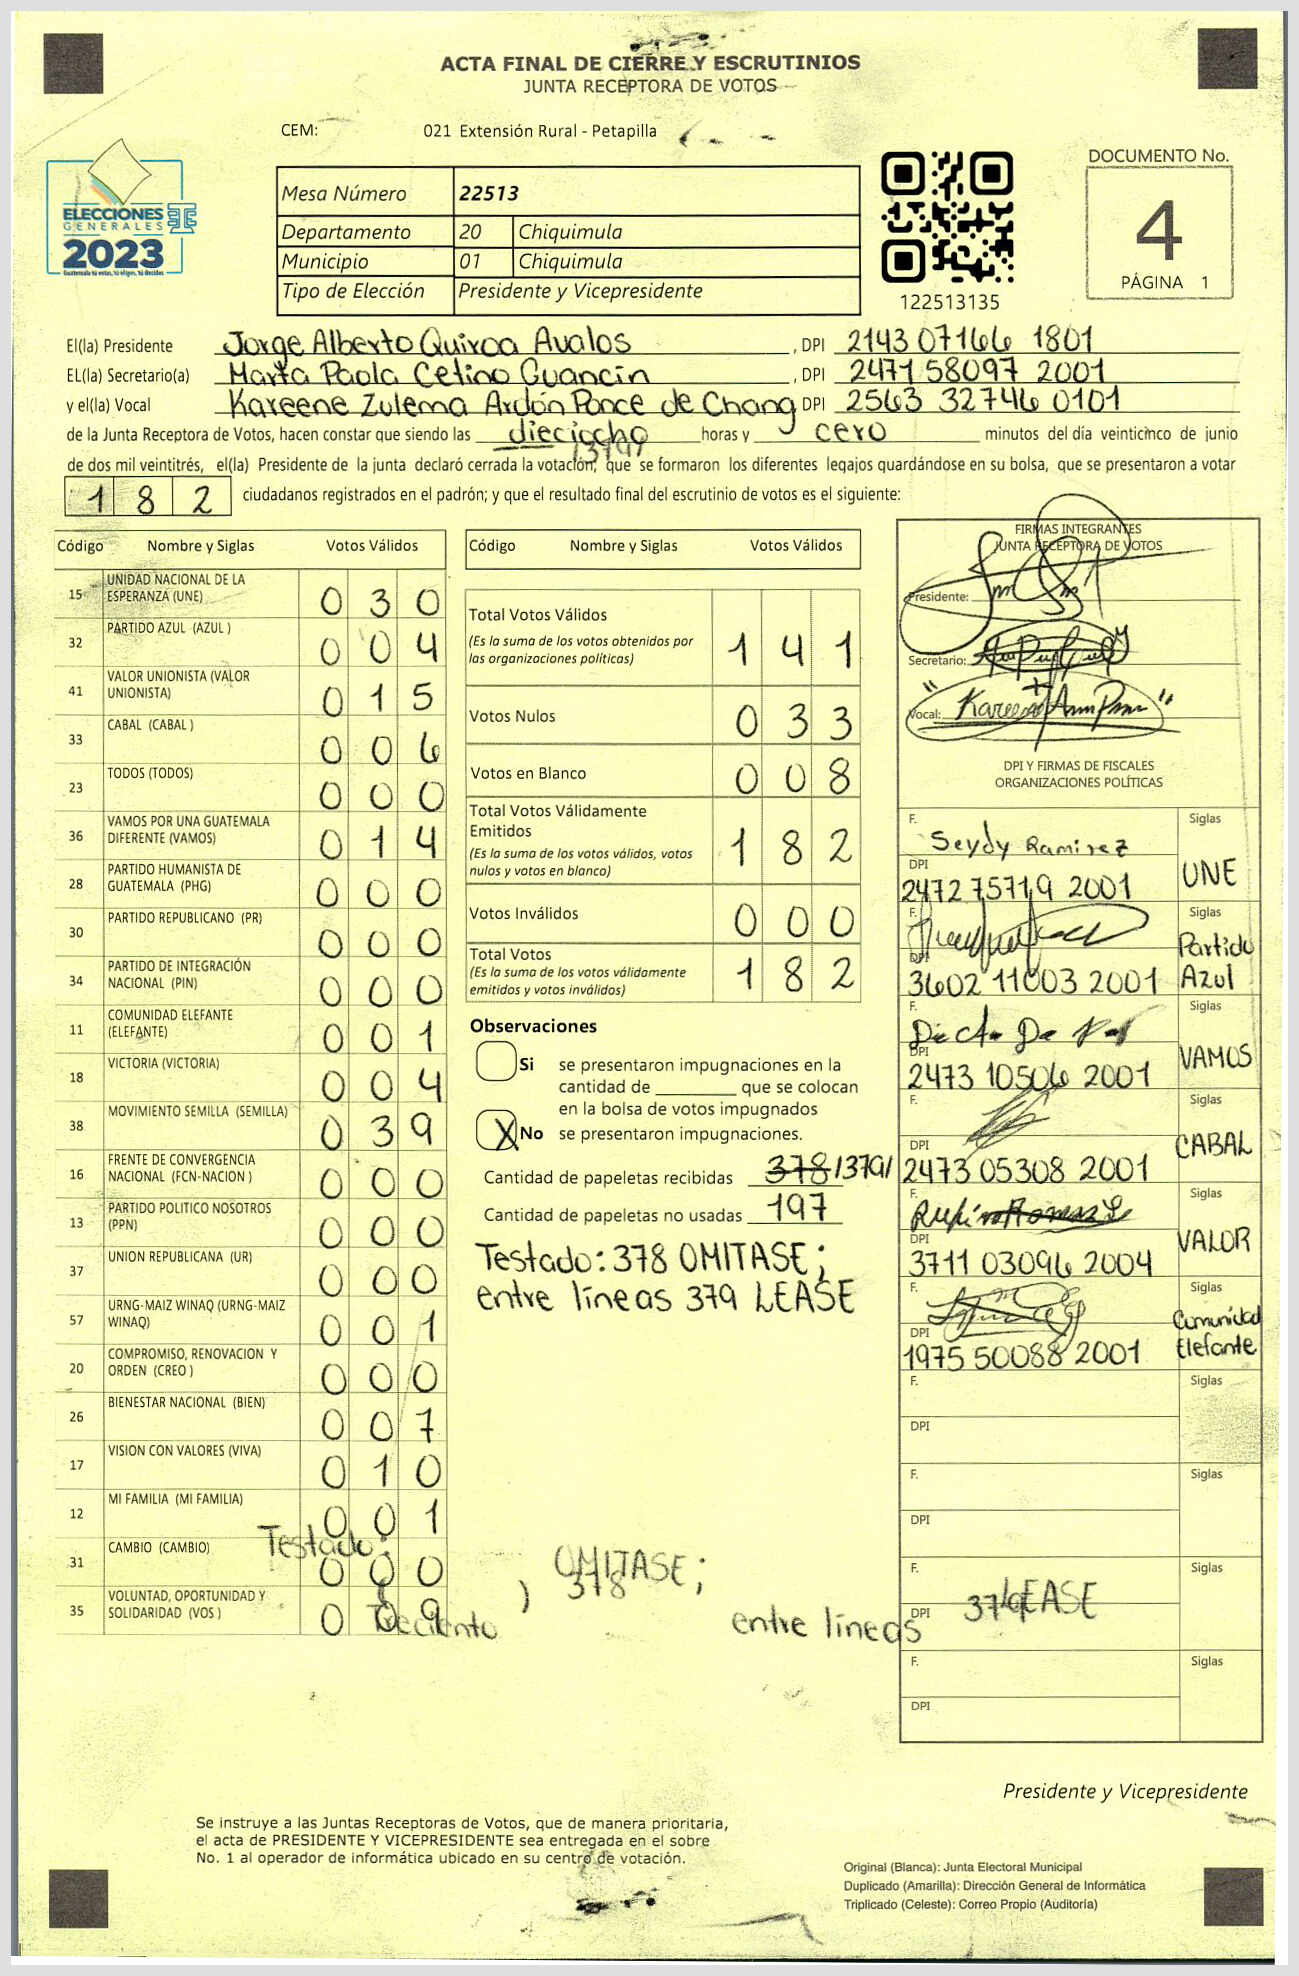 ACTA FINAL DE CIERRE Y ESCRUTINIOS
JUNTA RECEPTORA DE VOTOS
CEM: 021 Extensión Rural - Petapilla
DOCUMENTO No.
4
PÁGINA 1
ELECCIONES
GENERALES
2023
Guatemala tú votas, tú eliges, tú decides
Mesa Número 22513
Departamento 20 Chiquimula
Municipio 01 Chiquimula
Tipo de Elección Presidente y Vicepresidente
122513135
El(la) Presidente Jorge Alberto Quiroa Avalos , DPI 2143 07166 1801
EL(la) Secretario(a) Marta Paola Cetino Guancin , DPI 2471 58097 2001
y el(la) Vocal Kareene Zulema Ardón Ponce de Chang DPI 2563 32746 0101
de la Junta Receptora de Votos, hacen constar que siendo las dieciocho horas y cero minutos del día veinticinco de junio
de dos mil veintitrés, el(la) Presidente de la junta declaró cerrada la votación, que se formaron los diferentes legajos guardándose en su bolsa, que se presentaron a votar
182 ciudadanos registrados en el padrón; y que el resultado final del escrutinio de votos es el siguiente:
Código Nombre y Siglas Votos Válidos
15 UNIDAD NACIONAL DE LA ESPERANZA (UNE) 0 3 0
32 PARTIDO AZUL (AZUL ) 0 0 4
41 VALOR UNIONISTA (VALOR UNIONISTA) 0 1 5
33 CABAL (CABAL ) 0 0 6
23 TODOS (TODOS) 0 0 0
36 VAMOS POR UNA GUATEMALA DIFERENTE (VAMOS) 0 1 4
28 PARTIDO HUMANISTA DE GUATEMALA (PHG) 0 0 0
30 PARTIDO REPUBLICANO (PR) 0 0 0
34 PARTIDO DE INTEGRACIÓN NACIONAL (PIN) 0 0 0
11 COMUNIDAD ELEFANTE (ELEFANTE) 0 0 1
18 VICTORIA (VICTORIA) 0 0 4
38 MOVIMIENTO SEMILLA (SEMILLA) 0 3 9
16 FRENTE DE CONVERGENCIA NACIONAL (FCN-NACION ) 0 0 0
13 PARTIDO POLITICO NOSOTROS (PPN) 0 0 0
37 UNION REPUBLICANA (UR) 0 0 0
57 URNG-MAIZ WINAQ (URNG-MAIZ WINAQ) 0 0 1
20 COMPROMISO, RENOVACION Y ORDEN (CREO ) 0 0 0
26 BIENESTAR NACIONAL (BIEN) 0 0 7
17 VISION CON VALORES (VIVA) 0 1 0
12 MI FAMILIA (MI FAMILIA) 0 0 1
31 CAMBIO (CAMBIO) 0 0 0
35 VOLUNTAD, OPORTUNIDAD Y SOLIDARIDAD (VOS ) 0 0 9
Código Nombre y Siglas Votos Válidos
Total Votos Válidos 1 4 1
(Es la suma de los votos obtenidos por
las organizaciones políticas)
Votos Nulos 0 3 3
Votos en Blanco 0 0 8
Total Votos Válidamente
Emitidos 1 8 2
(Es la suma de los votos válidos, votos
nulos y votos en blanco)
Votos Inválidos 0 0 0
Total Votos 1 8 2
(Es la suma de los votos válidamente
emitidos y votos inválidos)
Observaciones
Si se presentaron impugnaciones en la
cantidad de ________ que se colocan
en la bolsa de votos impugnados
X No se presentaron impugnaciones.
Cantidad de papeletas recibidas 378 /379/
Cantidad de papeletas no usadas 197
Testado: 378 OMITASE;
entre líneas 379 LEASE
Testado:
OMITASE;
378
entre líneas
LEASE
FIRMAS INTEGRANTES
JUNTA RECEPTORA DE VOTOS
Presidente:
Secretario:
Vocal:
DPI Y FIRMAS DE FISCALES
ORGANIZACIONES POLÍTICAS
F. Seydy Ramirez Siglas
DPI 2472 75719 2001 UNE
F. Siglas
DPI 3602 11003 2001 Partido Azul
F. Siglas
DPI 2473 10506 2001 VAMOS
F. Siglas
DPI 2473 05308 2001 CABAL
F. Siglas
DPI 3711 03096 2004 VALOR
F. Siglas
DPI 1975 50088 2001 Comunidad Elefante
F. Siglas
DPI
F. Siglas
DPI
F. Siglas
DPI
F. Siglas
DPI
Presidente y Vicepresidente
Se instruye a las Juntas Receptoras de Votos, que de manera prioritaria,
el acta de PRESIDENTE Y VICEPRESIDENTE sea entregada en el sobre
No. 1 al operador de informática ubicado en su centro de votación.
Original (Blanca): Junta Electoral Municipal
Duplicado (Amarilla): Dirección General de Informática
Triplicado (Celeste): Correo Propio (Auditoría)